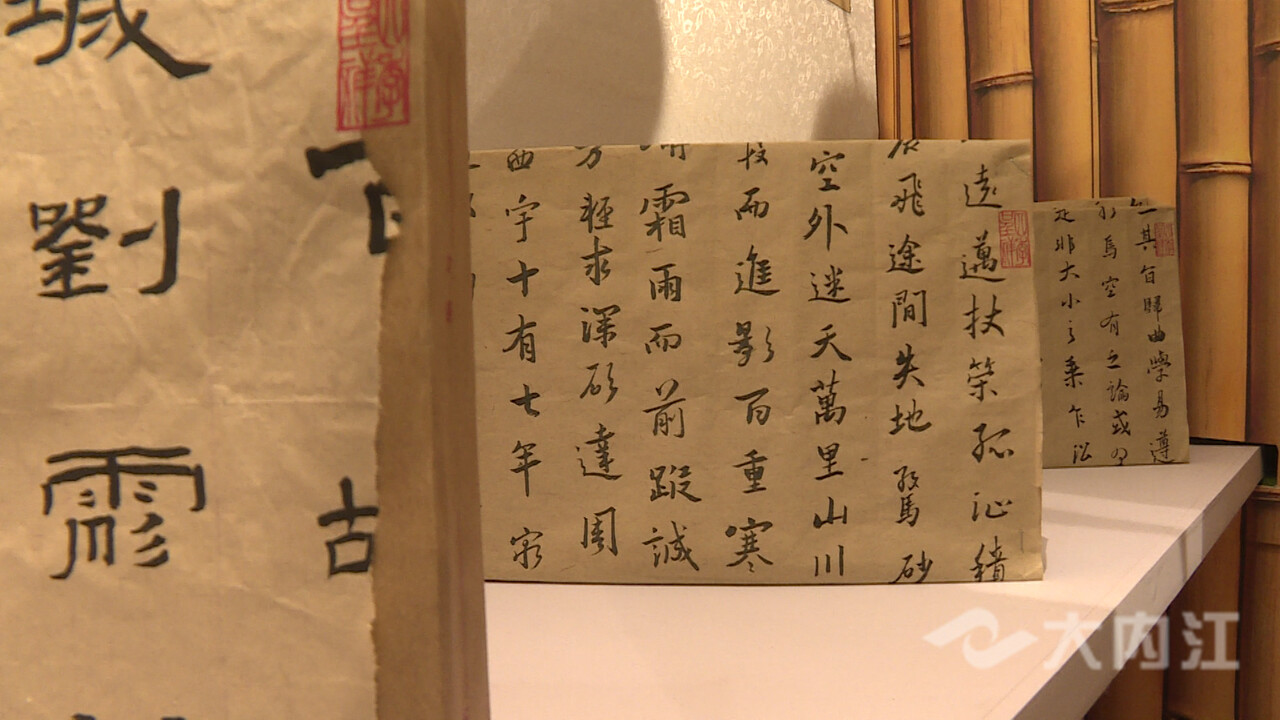 其旨歸曲學易遵
焉空有之論或
非大小之乘乍沿
遠邁杖策孤征積
飛途間失地驚砂
空外迷天萬里山川
而進影百重寒
霜雨而前蹤誠
輕求深願達周
西宇十有七年窮
古
劉
大内江